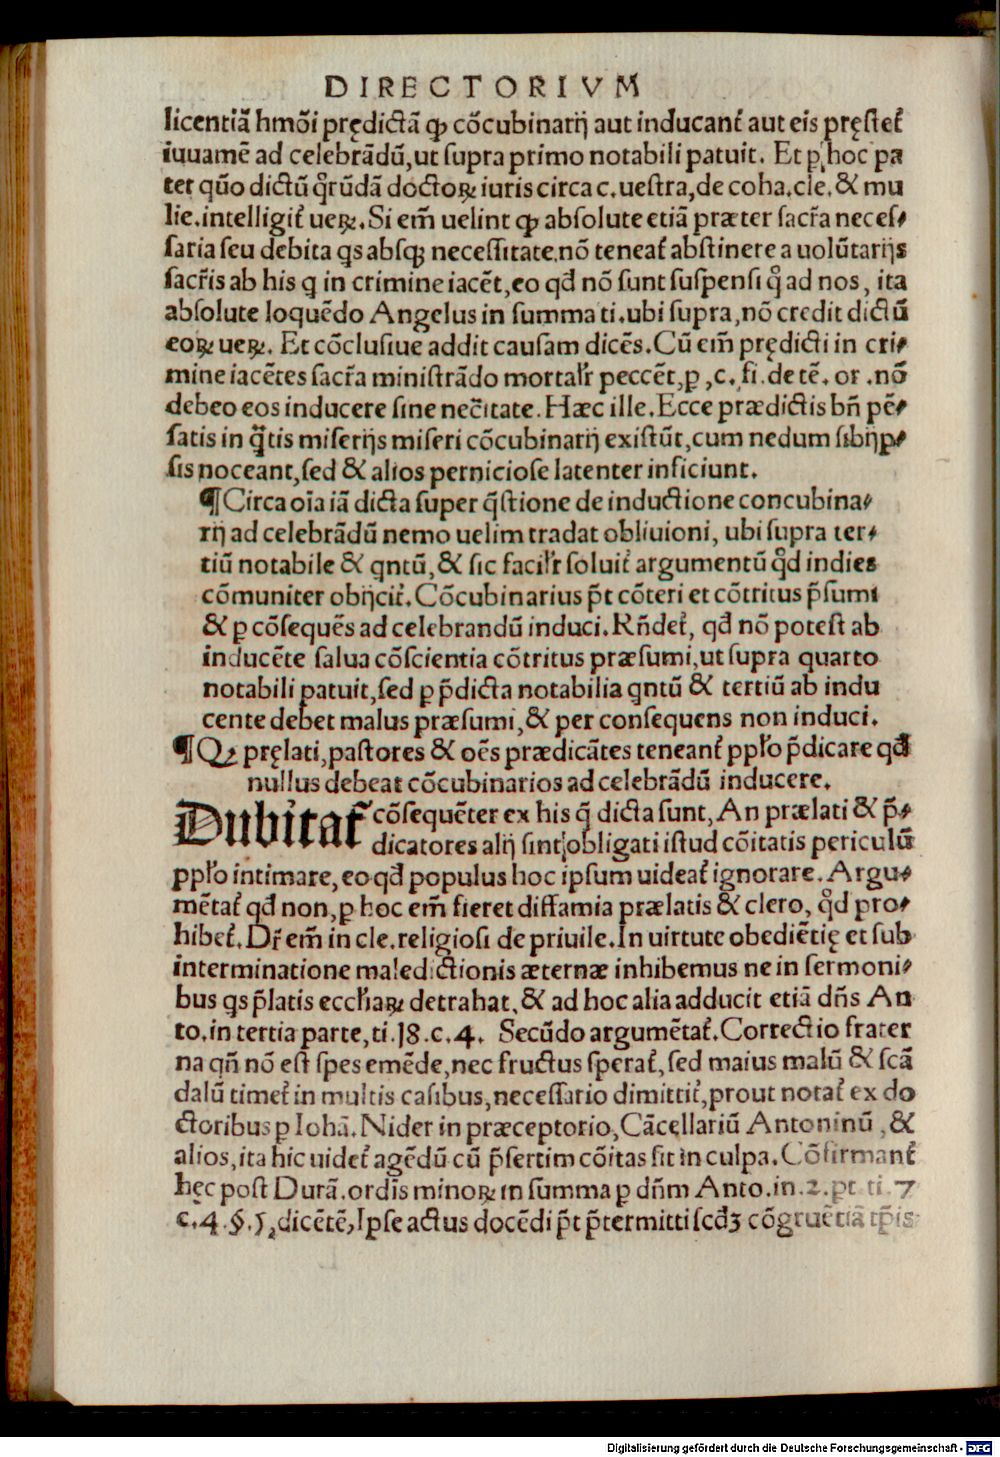 DIRECTORIVM
licentiã hmõi prędictã ꝙ cõcubinarij aut inducant᷑ aut eis pręstet᷑
iuuamẽ ad celebrãdũ,ut supra primo notabili patuit. Et p hoc pa
ter quo͂ dictũ q͛rũdã doctoꝝ iuris circa c.uestra,de coha.cle.& mu
lie.intelligit᷑ ueꝝ.Si em̃ uelint ꝙ absolute etiã præter sacr̃a neces⸗
saria seu debita qs absqꝫ necessitate.nõ teneat᷑ abstinere a uolũtarijs
sacr̃is ab his q in crimine iacẽt,eo qđ nõ sunt suspensi q͛ ad nos, ita
absolute loquẽdo Angelus in summa ti.ubi supra,nõ credit dictũ
eoꝝ ueꝝ. Et cõclusiue addit causam dicẽs.Cũ em̃ prędicti in cri⸗
mine iacẽtes sacr̃a ministrãdo mortalr̃ peccẽt,p ,c. fi.de tẽ. or .nõ
debeo eos inducere sine nec̃itate. Hæc ille. Ecce prædictis bñ pẽ⸗
satis in q̃tis miserijs miseri cõcubinarij existũt,cum nedum sibijp⸗
sis noceant,sed & alios perniciose latenter inficiunt.
¶Circa oĩa iã dicta super q̃stione de inductione concubina⸗
rij ad celebrãdũ nemo uelim tradat obliuioni, ubi supra ter⸗
tiũ notabile & qntũ,& sic facilr̃ soluit᷑ argumentũ q͛d indies
cõmuniter obijcit᷑.Cõcubinarius p̃t cõteri et cõtritus p̃sumi
& p cõsequẽs ad celebrandũ induci.Rñdet᷑, qđ nõ potest ab
inducẽte salua cõscientia cõtritus præsumi,ut supra quarto
notabili patuit,sed p p̃dicta notabilia qntũ & tertiũ ab indu
cente debet malus præsumi,& per consequens non induci.
¶Qꝫ pręlati,pastores & oẽs prædicãtes teneant᷑ pplo͂ p̃dicare qđ
nullus debeat cõcubinarios ad celebrãdũ inducere.
Dubitat᷑ cõsequẽter ex his q̃ dicta sunt,An prælati & p̃⸗
dicatores alij sint obligati istud cõitatis periculũ
pplo͂ intimare,eo qđ populus hoc ipsum uideat᷑ ignorare.Argu⸗
mẽtat᷑ qđ non,p hoc em̃ fieret diffamia prælatis & clero, q͛d pro⸗
hibet᷑.Dr̃ em̃ in cle.religiosi de priuile.In uirtute obediẽtię et sub
interminatione maledictionis æternæ inhibemus ne in sermoni⸗
bus qs p̃latis eccl̃iaꝝ detrahat,& ad hoc alia adducit etiã dñs An
to.in tertia parte,ti.18.c.4. Secũdo argumẽtat᷑.Correctio frater
na qñ nõ est spes emẽde,nec fructus sperat᷑,sed maius malũ & scã
dalũ timet᷑ in multis casibus,necessario dimittit᷑,prout notat᷑ ex do
ctoribus p Iohã.Nider in præceptorio,Cãcellariũ Antoninũ ,&
alios,ita hic uidet᷑ agẽdũ cũ p̃sertim cõitas sit in culpa.Cõfirmant᷑
hęc post Durã.ordis̃ minoꝝ in summa p dñm Anto.in.2.pt.ti.7
c.4.§.5,dicẽtẽ,Ipse actus docẽdi p̃t p̃termitti scđꝫ cõgruẽtiã tp̃is
Digitalisierung gefördert durch die Deutsche Forschungsgemeinschaft - DFG